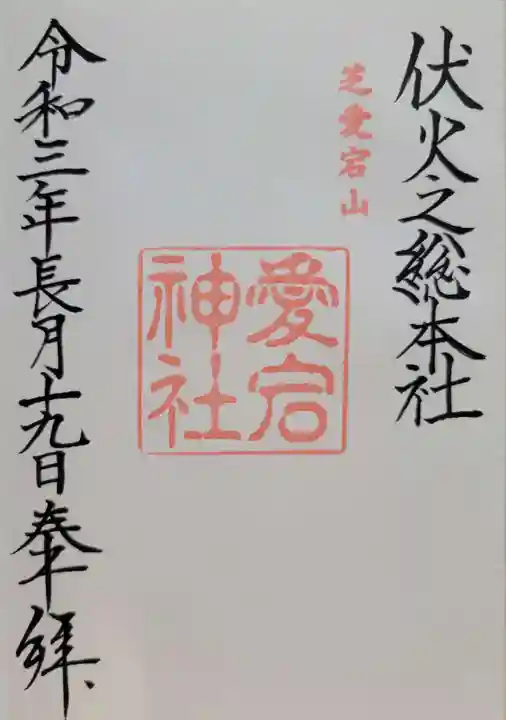 伏火之総本社
芝愛宕山
愛宕
神社
令和三年長月十九日奉拝